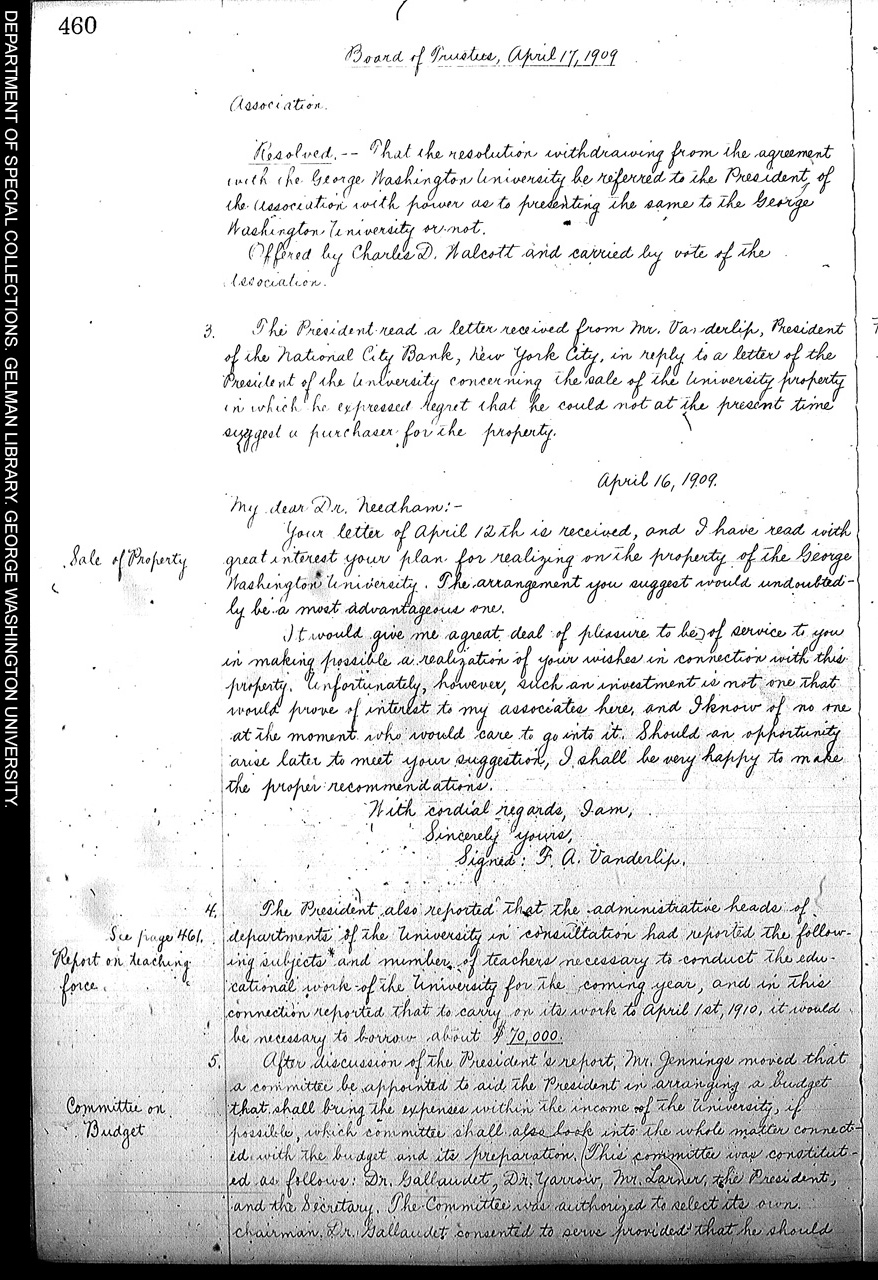 460
Board of Trustees, April 17, 1909
Association.
Resolved.-- That the resolution withdrawing from the agreement
with the George Washington University be referred to the President of
the Association with power as to presenting the same to the George
Washington University or not.
Offered by Charles D. Walcott and carried by vote of the
Association.
3. The President read a letter received from Mr. Vanderlip, President
of the National City Bank, New York City, in reply to a letter of the
President of the University concerning the sale of the University property
in which he expressed regret that he could not at the present time
suggest a purchaser for the property.
April 16, 1909.
My dear Dr. Needham:-
Your letter of April 12th is received, and I have read with
Sale of Property
great interest your plan for realizing on the property of the George
Washington University. The arrangement you suggest would undoubted-
ly be a most advantageous one.
It would give me a great deal of pleasure to be of service to you
in making possible a realization of your wishes in connection with this
property. Unfortunately, however, such an investment is not one that
would prove of interest to my associates here, and I know of no one
at the moment who would care to go into it. Should an opportunity
arise later to meet your suggestion, I shall be very happy to make
the proper recommendations.
With cordial regards, I am,
Sincerely yours,
Signed: F. A. Vanderlip.
4. The President also reported that the administrative heads of
See page 461.
departments of the University in consultation had reported the follow-
Report on teaching
force.
ing subjects* and number of teachers necessary to conduct the edu-
cational work of the University for the coming year, and in this
connection reported that to carry on its work to April 1st, 1910, it would
be necessary to borrow about $70,000.
5. After discussion of the President's report, Mr. Jennings moved that
a committee be appointed to aid the President in arranging a budget
Committee on
Budget
that shall bring the expenses within the income of the University, if
possible, which committee shall also look into the whole matter connect-
ed with the budget and its preparation. This committee was constitut-
ed as follows: Dr. Gallaudet, Dr. Yarrow, Mr. Larner, the President,
and the Secretary. The Committee was authorized to select its own
chairman. Dr. Gallaudet consented to serve provided that he should
DEPARTMENT OF SPECIAL COLLECTIONS. GELMAN LIBRARY. GEORGE WASHINGTON UNIVERSITY.